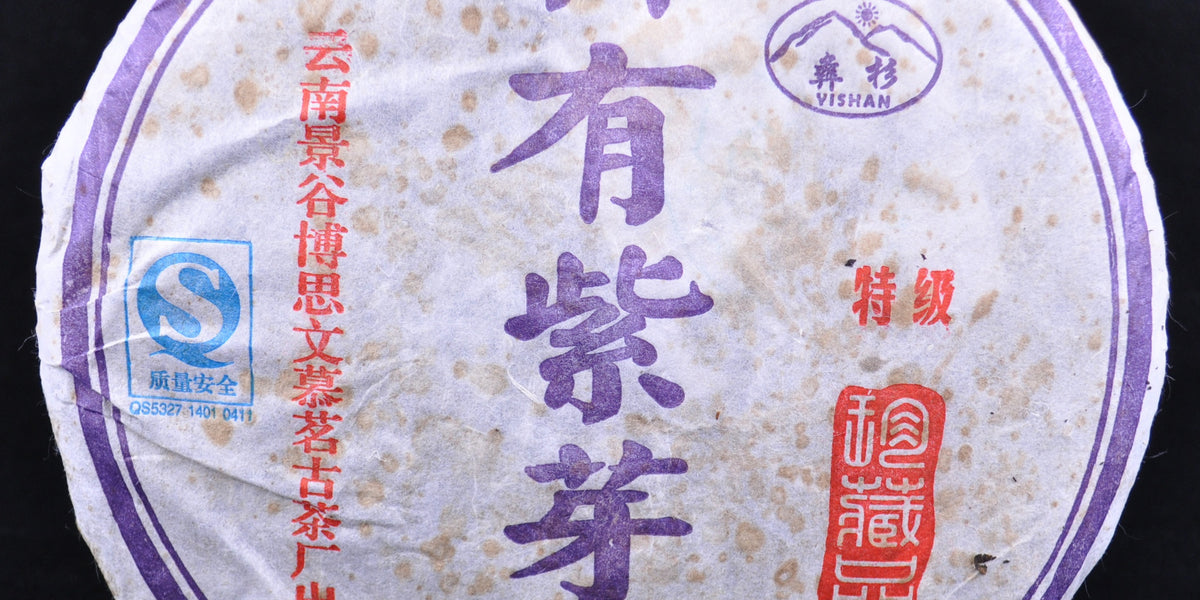 彝杉
YISHAN
有紫芽
特级
珍藏品
云南景谷博思文慕茗古茶厂出
S
质量安全
QS5327 1401 0411